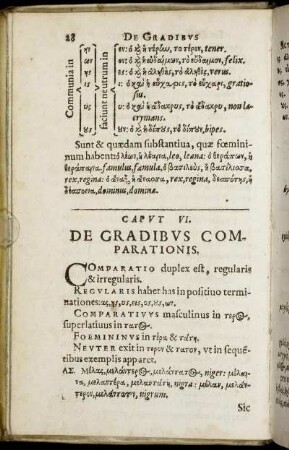 28 DE GRADIBVS
Communia in
faciunt neutrum in
ην
ων
ης
ις
υς
ους
εν: ὁ κὴ ἡ τέρην, το τέρεν, tener.
ον: ὁ κὴ ἡ εὐδαίμων, το εὔδαιμον, felix.
ες: ὁ κὴ ἡ ἀληθὴς, το ἀληθὲς, verus.
ι: ὁ κὴ ἡ εὔχαρις, το εὔχαρι, gratio-
sus.
υ: ὁ κὴ ἡ ἄδακρυς, το ἄδακρυ, non la-
crymans.
ουν: ὁ κὴ ἡ δίπους, το δίπουν, bipes.
Sunt & quædam substantiua, quæ fœmini-
num habent: ὁ λέων, ἡ λέαινα, leo, leæna: ὁ θεράπων, ἡ
θεράπαινα, famulus, famula, ὁ βασιλεὺς, ἡ βασίλισσα,
rex, regina: ὁ ἄναξ, ἡ ἄνασσα, rex, regina, δεσπότης, ἡ
δέσποινα, dominus, domina.
CAPVT VI.
DE GRADIBVS COM-
PARATIONIS.
COMPARATIO duplex est, regularis
& irregularis.
REGVLARIS habet has in positiuo termi-
nationes: ας, ης, ος, εις, ους, υς, ων.
COMPARATIVVS masculinus in τερος,
superlatiuus in τατος.
FOEMININVS in τέρα & τάτη.
NEVTER exit in τερον & τατον, vt in sequē-
tibus exemplis apparet.
ΑΣ. Μέλας, μελάντερος, μελάντατος, niger: μέλαι-
να, μελαντέρα, μελαντάτη, nigra: μέλαν, μελάν-
τερον, μελάντατον, nigrum.
Sic